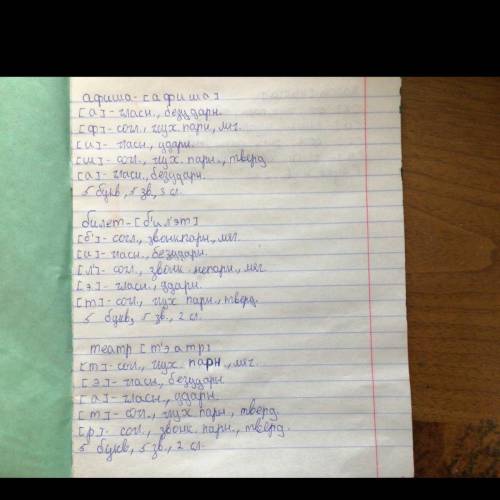 афиша - [афиша]
[а] - гласн., безударн.
[ф] - согл., глух. парн., мяг.
[и] - гласн., ударн.
[ш] - согл., глух. парн., тверд.
[а] - гласн., безударн.
5 букв, 5 зв., 3 сл.
билет - [б'ил'эт]
[б'] - согл., звонк парн., мяг.
[и] - гласн., безударн.
[л'] - согл., звонк. непарн., мяг.
[э] - гласн., ударн.
[т] - согл., глух парн., тверд.
5 букв, 5 зв., 2 сл.
театр [т'эатр]
[т] - сог., глух. парн., мяг.
[э] - гласн, безударн
[а] - гласн., ударн.
[т] - согл., глух парн., тверд.
[р] - согл., звонк. парн., тверд.
5 букв, 5 зв., 2 сл.